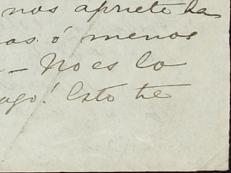 nos aprieta la
as ó menos
- No es lo
ago! Esto te